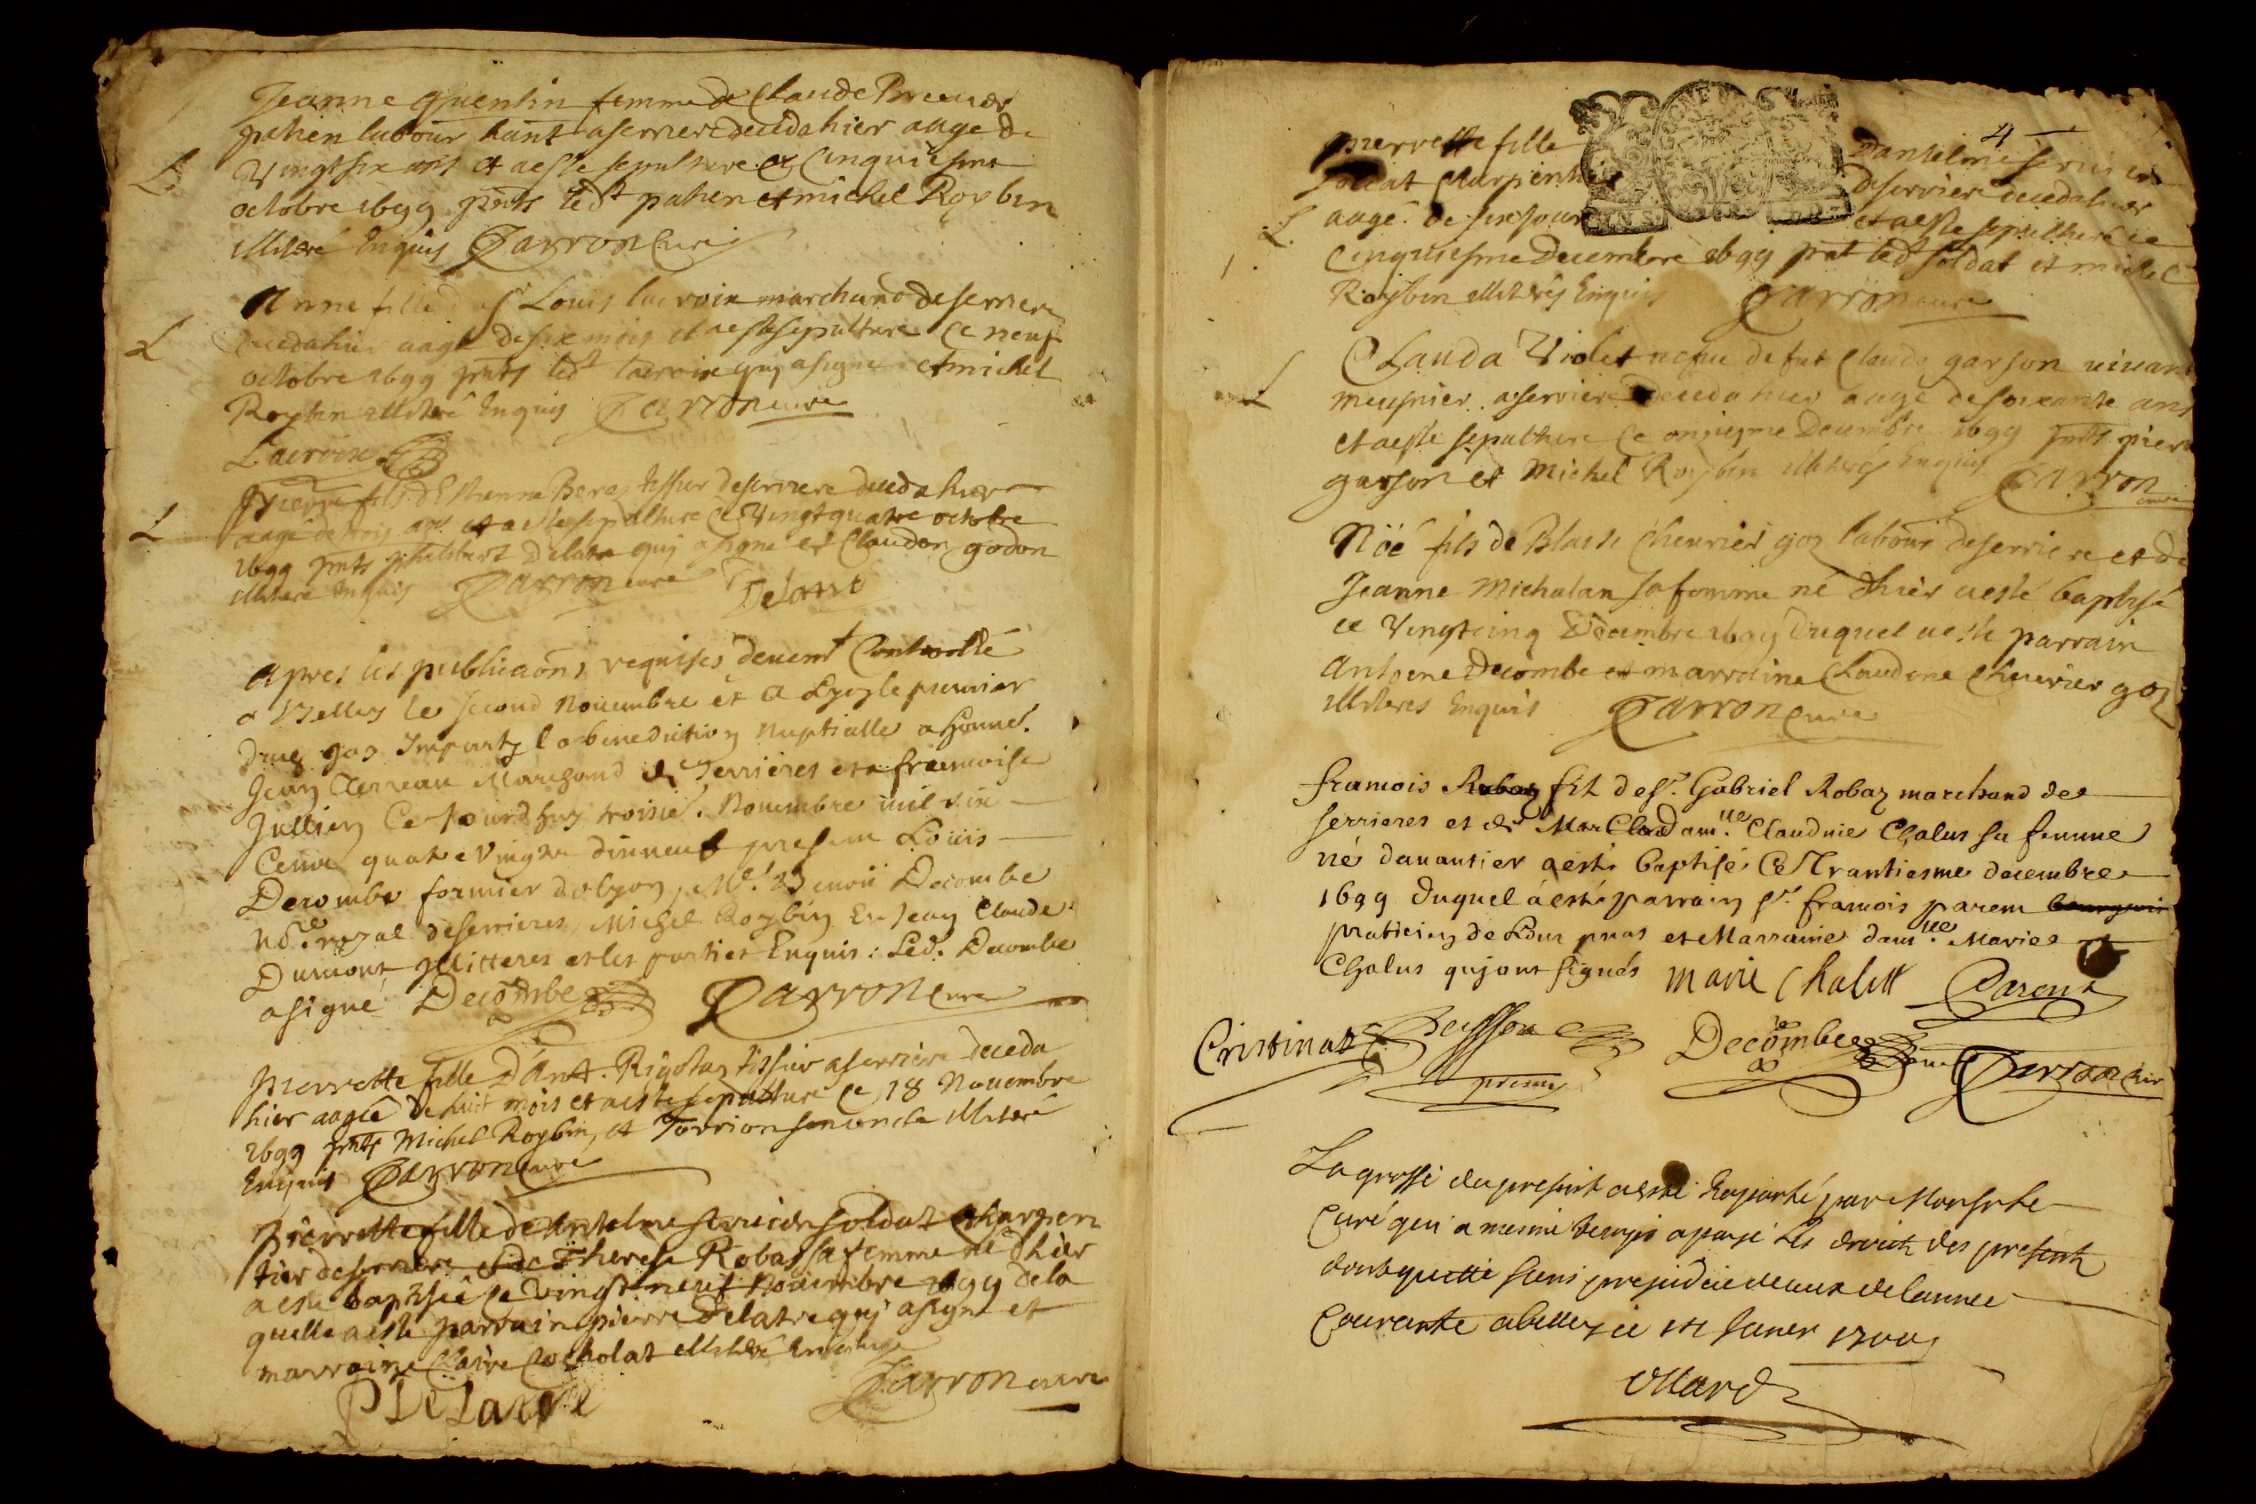 Jeanne Quentin femme de Claude
pahen labour hant a serriere deceda hier aage de
Vingt six ans et a este sepulture ce cinquiesme
octobre 1699 pnts led.t pahen et michel Roybin
illiteré Enquis Parron curé
L
Anne fille d sr Louis lacroix marchand de serriere
decedahier aagé de six mois et a este sepulture ce neuf
octobre 1699 pnts led.t lacroix quj a signe et michel
Roybin illiteré Enquis Parron cure
L
Lacroix
pierre fils d'Estienne tissier de serriere deceda hier
aagé de trois ans et a este sepulture ce Vingt quatre octobre
1699 pnts philibert Delatre quj a signe et Claudon godon
illiteré Enquis Parron cure Delatre
L
Apres les publicaons requises deuemt Controllé
a Belley le second Nouembre et a Lyon le premier
Jay Imparty la benediction Nuptialle a honne.
Jean Terreau Marchand de Serrieres et a francoise
Jullien Ce Jourdhuy troisie. Nouembre mil six
Cents quatre Vingts dix neuf presens Louis
Decombe fermier de Lyon, Me. Decombe
Nore royal de serrieres, Michel Roybin Et Jean Claude
Dumont Illitteres et les parties Enquis: Led. Decombe
a signé Decombe Parron Cure
pierrette fille D'Ant. Rigotaz tissier a serriere deceda
hier aagée de huit mois et a este sepulture ce 18 Nouembre
1699 pnts Michel Roybin, et Torrion son oncle illiteré
Enquis Parron curé
Pierrette fille de Antelme soldat Charpen
tier de serriere et de Therese Robaz sa femme né d'hier
a este baptisée ce vingt neuf Nouembre 1699 de la
quelle a este parrain pierre Delatre quj a signe et
marraine Claire Cocholat illiteré Enquise
P DeLatre Parron cure
4
pierrette fille Dantelme
soldat Charpentier deserrier decedahier
aagé de six jours et a este sepulture ce
L
cinquiesme Decembre 1699 pnt led.t soldat et michel
Roybin illiterés Enquis Parron cure
Clauda Violet uefue de fut Claude garson uiuant
L
meusnier a serriere Deceda hier aagé de soixante ans
et a este sepulture ce onziesme Decembre 1699 pnts pierre
garson et Michel Roybin illiterés Enquis Parron
cure
Noé fils de Blaise Cheurier goz labour de serriere et de
Jeanne Michalan sa femme né d'hier a esté baptisé
ce Vingt cinq Decembre 1699 Duquel a esté parrain
Antoene Decombe et marraine Claudine Cheurier goz
illiteres Enquis Parron Cure
francois Robaz fils de sr. Gabriel Robaz marchand de
serrieres et de damlle Claudine Chalus sa femme
né dauantier a esté baptisé Ce Trantiesme decembre
1699 duquel a esté parrain sr. francois parem
praticien de et Marraine damlle Marie
Chalus quj ont signés Marie Chalus Parent
Cristinat Buisson Decombe Parron Curé
present
La grosse du present a esté Raporté par Monsr le
Curé qui a mesme temps a payé les droicts des presents
dont quitté sans prejudice de ceux de lannee
Courante a belley ce Janer 1700